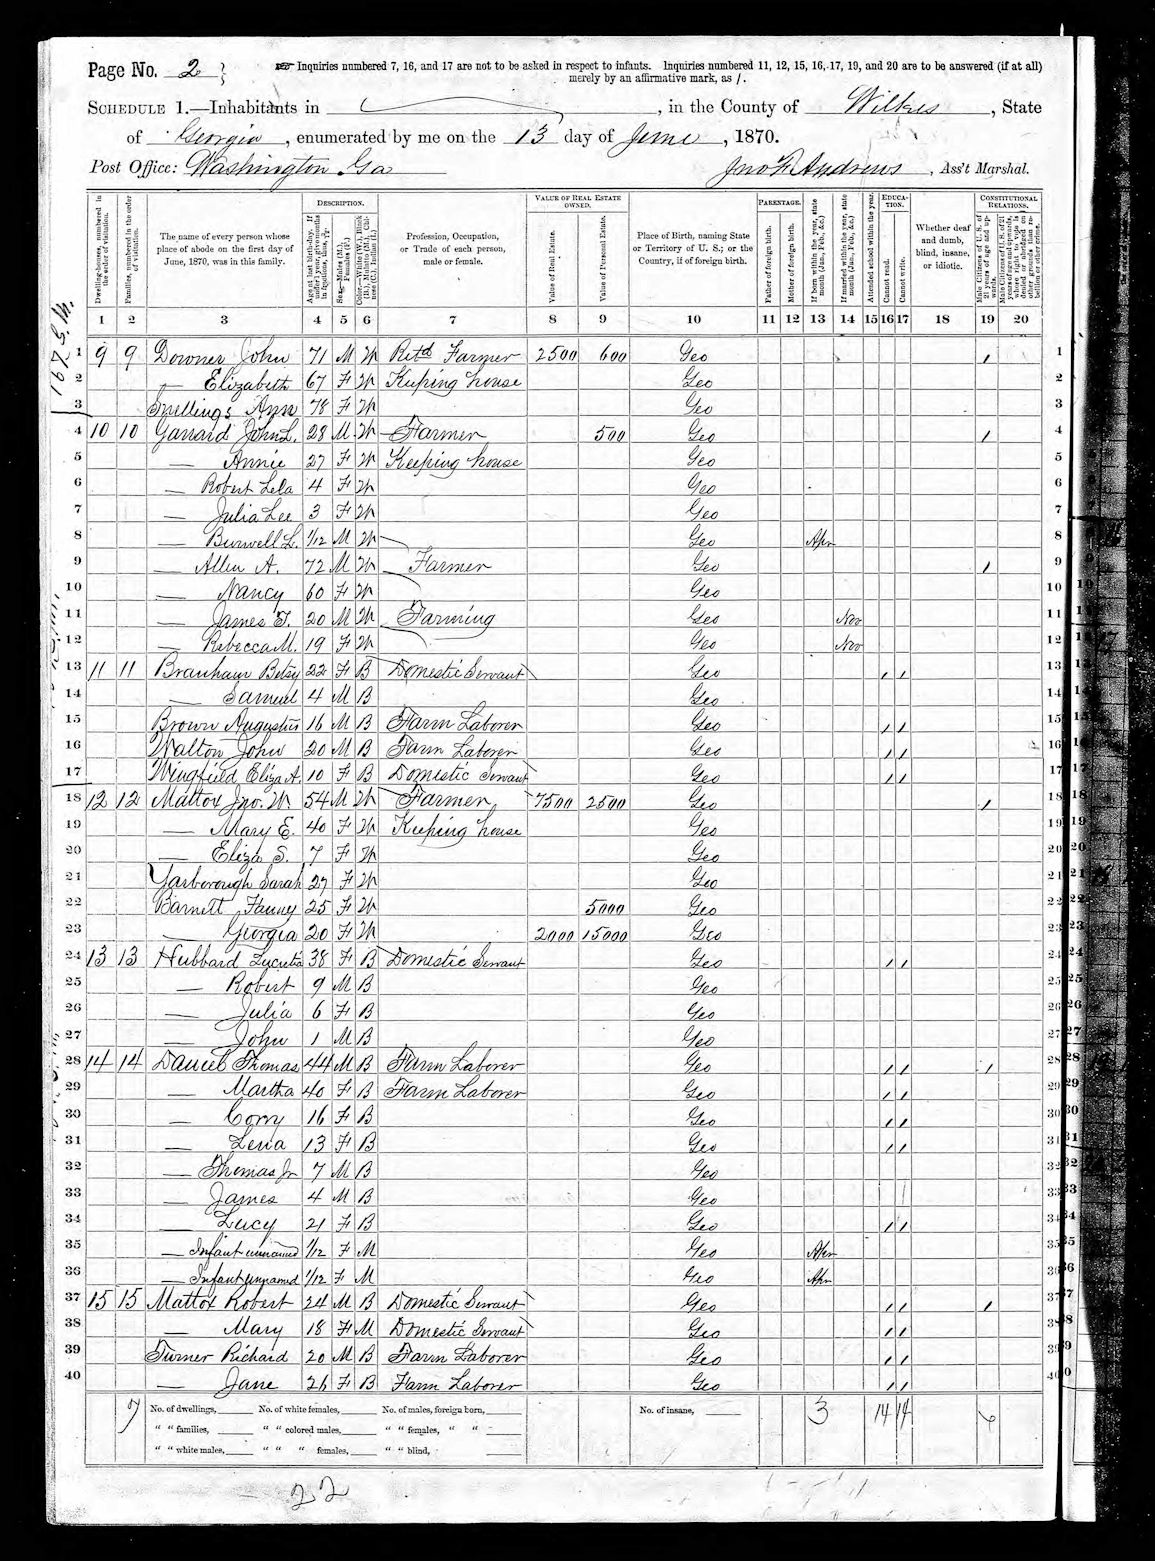 Page No. 2
☞ Inquiries numbered 7, 16, and 17 are not to be asked in respect to infants. Inquiries numbered 11, 12, 15, 16, 17, 19, and 20 are to be answered (if at all)
merely by an affirmative mark, as /.
SCHEDULE 1.—Inhabitants in , in the County of Wilkes, State
of Georgia, enumerated by me on the 13 day of June, 1870.
Post Office: Washington Ga Jno F Andrews, Ass't Marshal.
DESCRIPTION. VALUE OF REAL ESTATE OWNED. PARENTAGE. EDUCATION. CONSTITUTIONAL RELATIONS.
Dwelling-houses, numbered in the order of visitation.
Families, numbered in the order of visitation.
The name of every person whose place of abode on the first day of June, 1870, was in this family.
Age at last birth-day. If under 1 year, give months in fractions, thus, 3/12
Sex.—Males (M.), Females (F.)
Color.—White (W.), Black (B.), Mulatto (M.), Chinese (C.), Indian (I.)
Profession, Occupation, or Trade of each person, male or female.
Value of Real Estate.
Value of Personal Estate.
Place of Birth, naming State or Territory of U. S.; or the Country, if of foreign birth.
Father of foreign birth.
Mother of foreign birth.
If born within the year, state month (Jan., Feb., &c.)
If married within the year, state month (Jan., Feb., &c.)
Attended school within the year.
Cannot read.
Cannot write.
Whether deaf and dumb, blind, insane, or idiotic.
Male Citizens of U. S. of 21 years of age and upwards.
Male Citizens of U. S. of 21 years of age and upwards, whose right to vote is denied or abridged on other grounds than rebellion or other crime.
1 2 3 4 5 6 7 8 9 10 11 12 13 14 15 16 17 18 19 20
1 9 9 Downer John 71 M W Retd Farmer 2500 600 Geo / 1
2 — Elizabeth 67 F W Keeping house Geo 2
3 Snellings Ann 78 F W Geo 3
4 10 10 Garrard John L. 28 M W Farmer 500 Geo / 4
5 — Annie 27 F W Keeping house Geo 5
6 — Robert Lela 4 F W Geo 6
7 — Julia Lee 3 F W Geo 7
8 — Burwell L. 1/12 M W Geo Apr 8
9 — Allen A. 72 M W Farmer Geo / 9
10 — Nancy 60 F W Geo 10
11 — James T. 20 M W Farming Geo Nov 11
12 — Rebecca M. 19 F W Geo Nov 12
13 11 11 Branham Betsy 22 F B Domestic Servant Geo / / 13
14 — Samuel 4 M B Geo 14
15 Brown Augustus 16 M B Farm Laborer Geo / / 15
16 Walton John 20 M B Farm Laborer Geo / / 16
17 Wingfield Eliza A. 10 F B Domestic Servant Geo / / 17
18 12 12 Mattox Jno. W 54 M W Farmer 7500 2500 Geo / 18
19 — Mary E. 40 F W Keeping house Geo 19
20 — Eliza S. 7 F W Geo 20
21 Yarborough Sarah 27 F W Geo 21
22 Barnett Fanny 25 F W 5000 Geo 22
23 — Georgia 20 F W 2000 15000 Geo 23
24 13 13 Hubbard Lucretia 38 F B Domestic Servant Geo / / 24
25 — Robert 9 M B Geo 25
26 — Julia 6 F B Geo 26
27 — John 1 M B Geo 27
28 14 14 Daniel Thomas 44 M B Farm Laborer Geo / / / 28
29 — Martha 40 F B Farm Laborer Geo / / 29
30 — Corry 16 F B Geo / / 30
31 — Lena 13 F B Geo / / 31
32 — Thomas Jr 7 M B Geo 32
33 — James 4 M B Geo 33
34 — Lucy 21 F B Geo / / 34
35 — Infant unnamed 1/12 F M Geo Apr 35
36 — Infant unnamed 1/12 F M Geo Apr 36
37 15 15 Mattox Robert 24 M B Domestic Servant Geo / / / 37
38 — Mary 18 F M Domestic Servant Geo / / 38
39 Turner Richard 20 M B Farm Laborer Geo / / 39
40 — Jane 26 F B Farm Laborer Geo / / 40
7 No. of dwellings, No. of white females, No. of males, foreign born, No. of insane, 3 14 14 6
" " families, " " colored males, " " females, " "
" " white males, " " " females, " " blind,
22